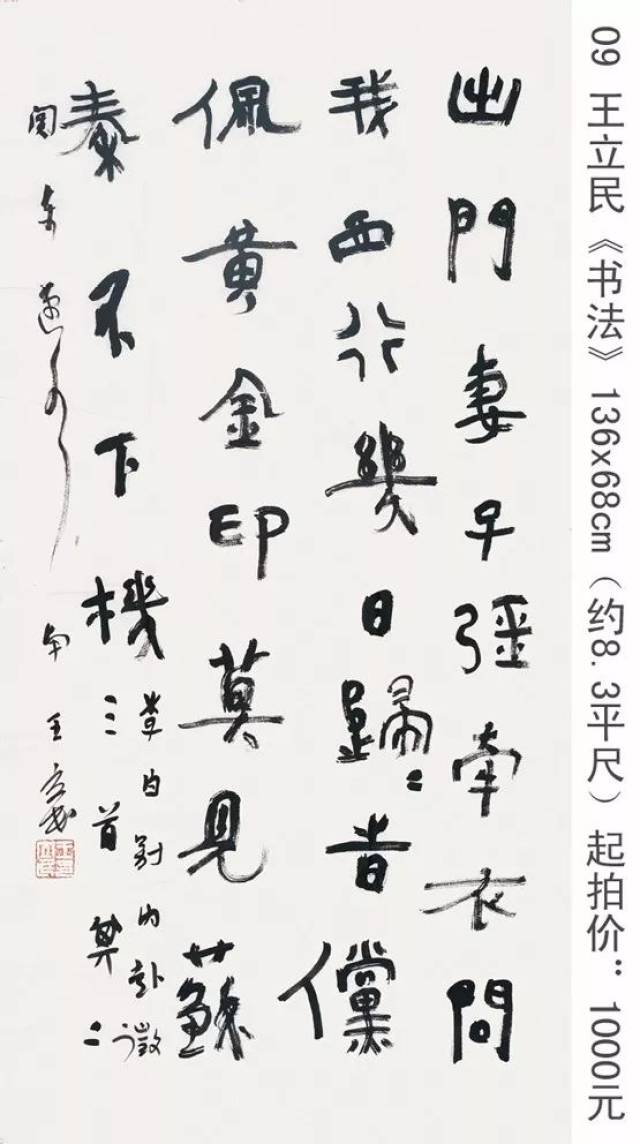 出門妻子彊牽衣問
我西行幾日歸〻旹儻
佩黃金印莫見蘇
秦不下機
李白別内赴徵
三首其二
王立民
09 王立民《书法》136x68cm（约8.3平尺）起拍价：1000元